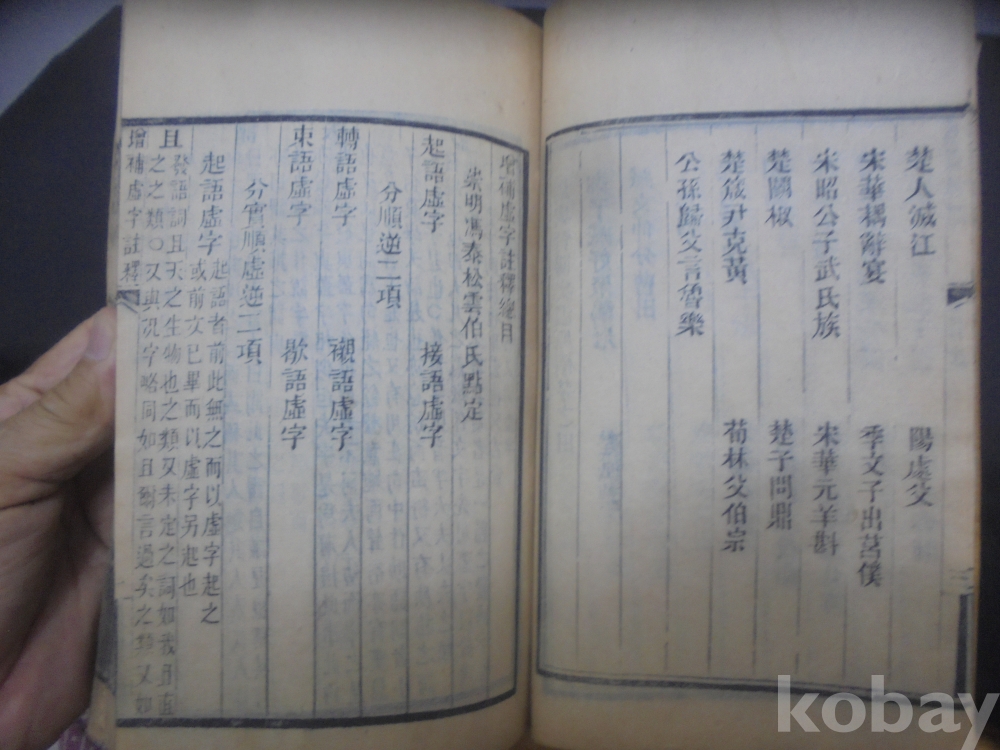 楚人滅江　陽處父
宋華耦辭宴　季文子出莒僕
宋昭公子武氏族　宋華元羊斟
楚鬬椒　楚子問鼎
楚箴尹克黃　荀林父伯宗
公孫歸父言魯樂
增補虛字註釋總目
崇明馮泰松雲伯氏點定
起語虛字　接語虛字
分順逆二項
轉語虛字　襯語虛字
束語虛字　歇語虛字
分實順虛逆二項
起語虛字
起語者前此無之而以虛字起之
或前文已畢而以虛字另起也
且
發語詞且天之生物也之類又未定之詞如我且直
之之類○又與況字略同如且爾言過矣之類又如
增補虛字註釋
kobay